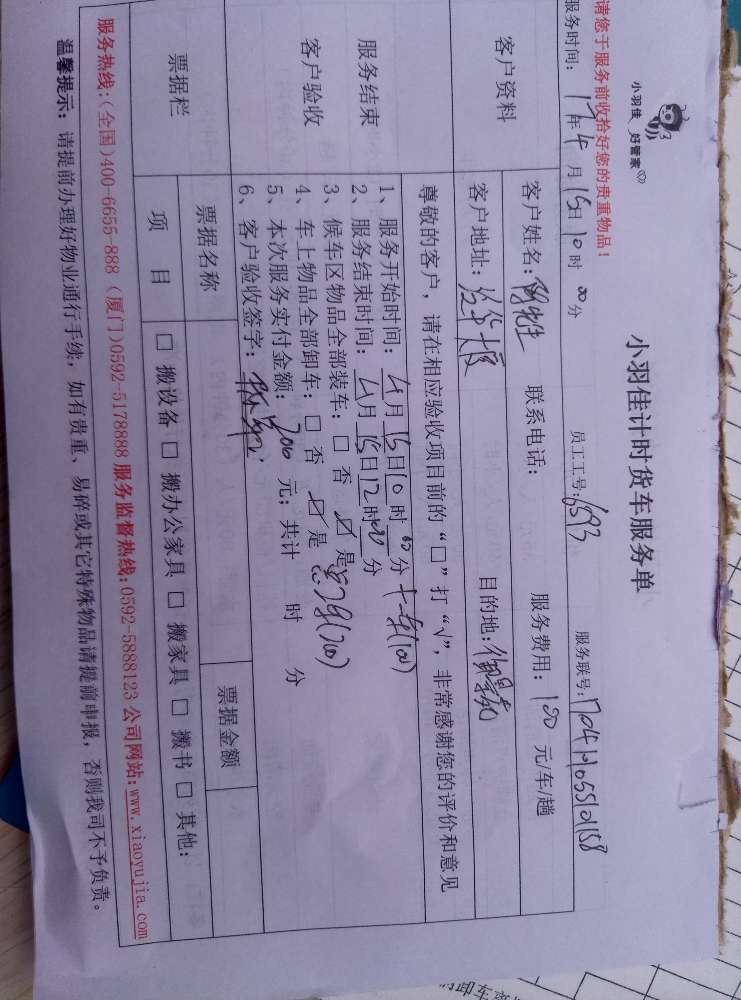 请您于服务前收拾好您的贵重物品！
小羽佳 好管家
小羽佳计时货车服务单
服务时间：17年4月15日10时00分 员工工号：6593 服务联号：
客户资料 客户姓名： 联系电话： 服务费用：100元/车/趟
客户地址： 目的地：
尊敬的客户，请在相应验收项目前的“□”打“√”，非常感谢您的评价和意见
服务结束
客户验收
1、服务开始时间：4月15日10时00分
2、服务结束时间：4月15日12时00分
3、候车区物品全部装车：□否 ☑是
4、车上物品全部卸车：□否 ☑是
5、本次服务实付金额：200元；共计 时 分
6、客户验收签字：
票据栏 票据名称 票据金额
项目 □搬设备 □搬办公家具 □搬家具 □搬书 □其他：
服务热线：（全国）400-6655-888（厦门）0592-5178888 服务监督热线：0592-5888123 公司网站：www.xiaoyujia.com
温馨提示：请提前办理好物业通行手续，如有贵重、易碎或其它特殊物品请提前申报，否则我司不予负责。